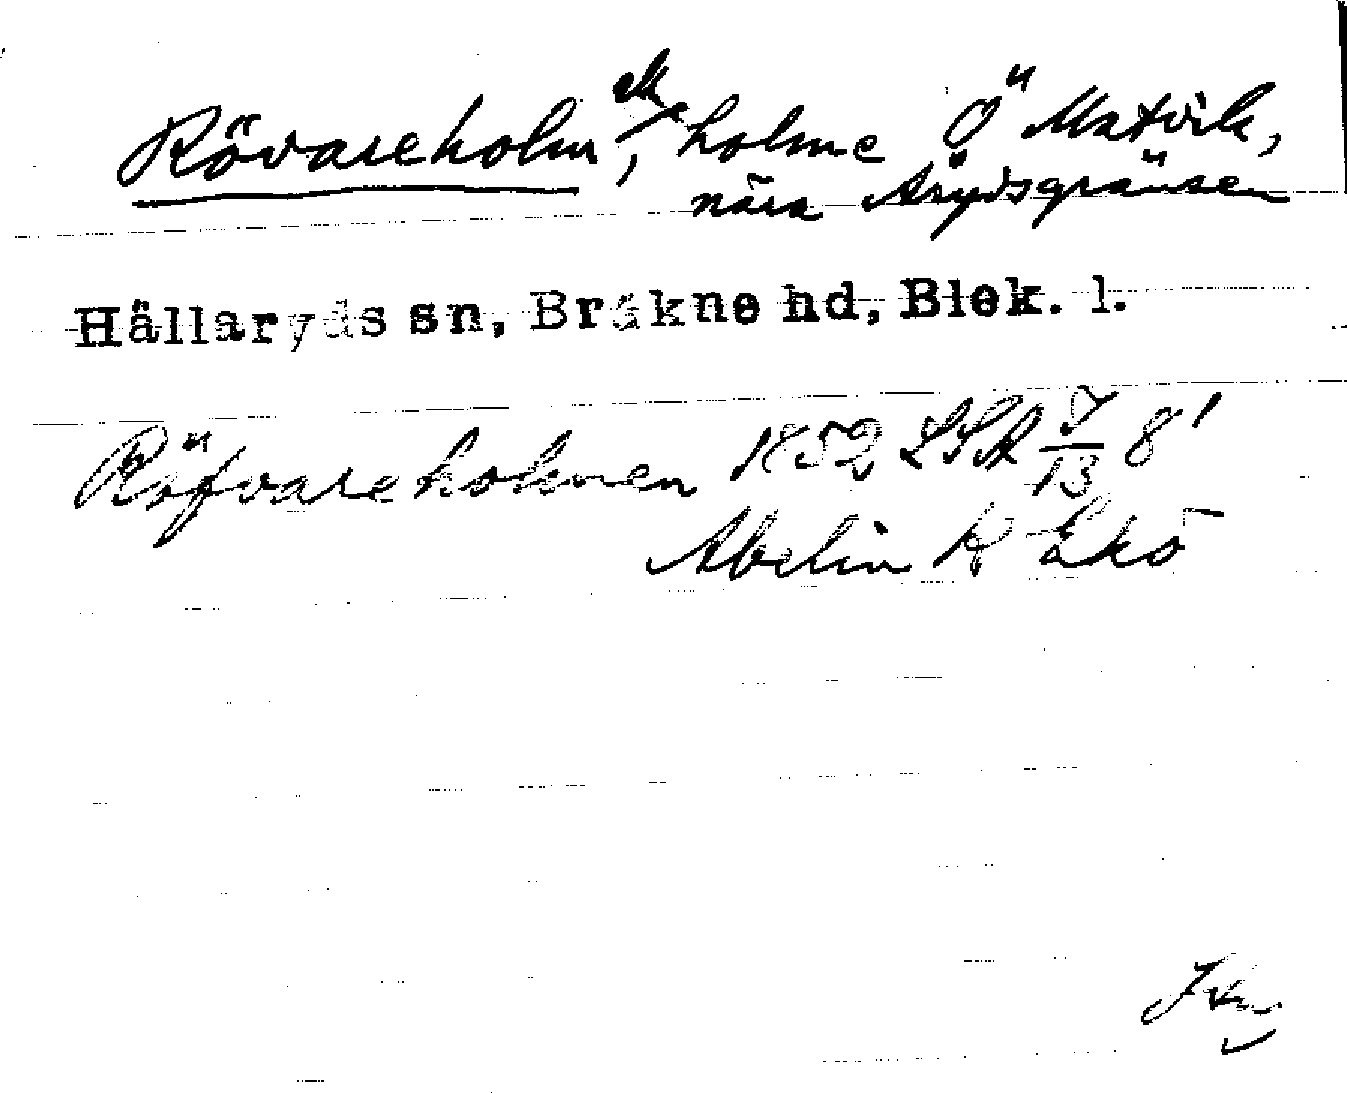 Rövareholm, holme Ö Matvik,
nära Årydsgränsen
Hällaryds sn, Bräkne hd, Blek. l.
Röfvareholmen 1852 LSA 8'
Abelin K Ekö